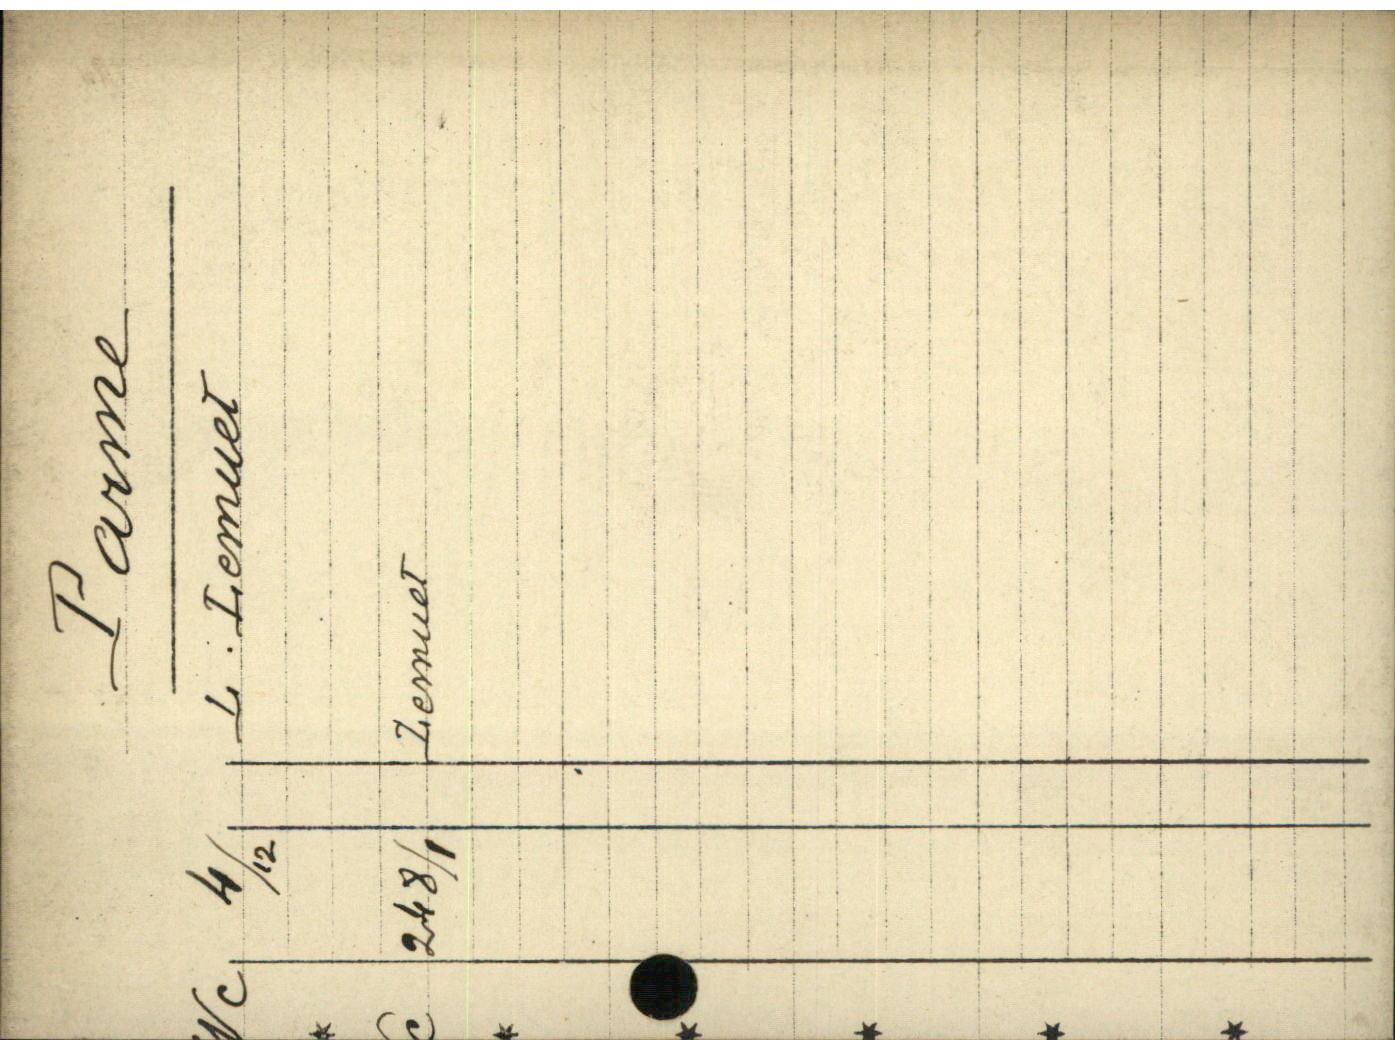 Parme
Nc 4/12 L. Lemuet
c 248/1 Lemuet